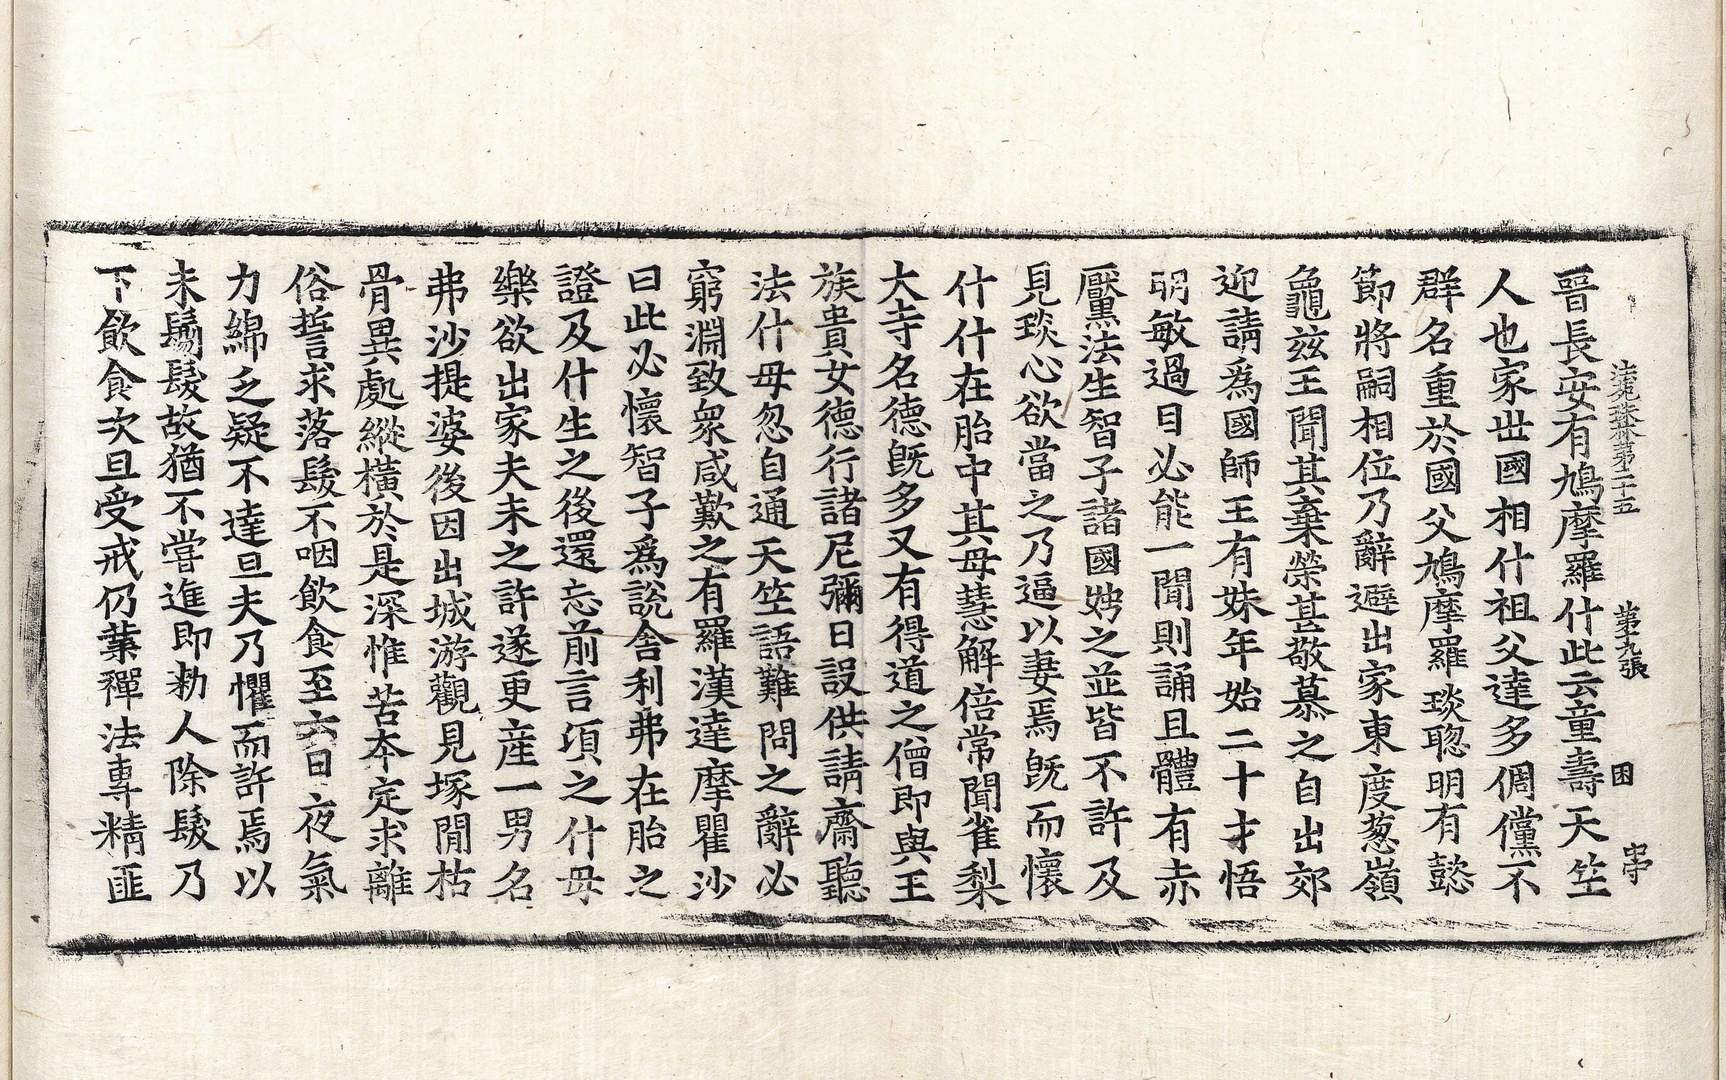 法苑珠林第二十五 第十九張 困 忠守
晉長安有鳩摩羅什此云童壽天竺
人也家世國相什祖父達多倜儻不
群名重於國父鳩摩羅琰聦明有懿
節將嗣相位乃辭避出家東度葱嶺
龜茲王聞其棄榮甚敬慕之自出郊
迎請爲國師王有妹年始二十才悟
明敏過目必能一聞則誦且體有赤
黶法生智子諸國娉之並皆不許及
見琰心欲當之乃逼以妻焉旣而懷
什什在胎中其母慧解倍常聞雀梨
大寺名德旣多又有得道之僧即與王
族貴女德行諸尼彌日設供請齋聽
法什母忽自通天竺語難問之辭必
窮淵致衆咸歎之有羅漢達摩瞿沙
曰此必懷智子爲說舍利弗在胎之
證及什生之後還忘前言頃之什母
樂欲出家夫未之許遂更産一男名
弗沙提婆後因出城游觀見塚閒枯
骨異處縱橫於是深惟苦本定求離
俗誓求落髮不咽飮食至六日夜氣
力綿乏疑不達旦夫乃懼而許焉以
未剔髮故猶不嘗進即勑人除髮乃
下飮食次旦受戒仍業禪法專精匪